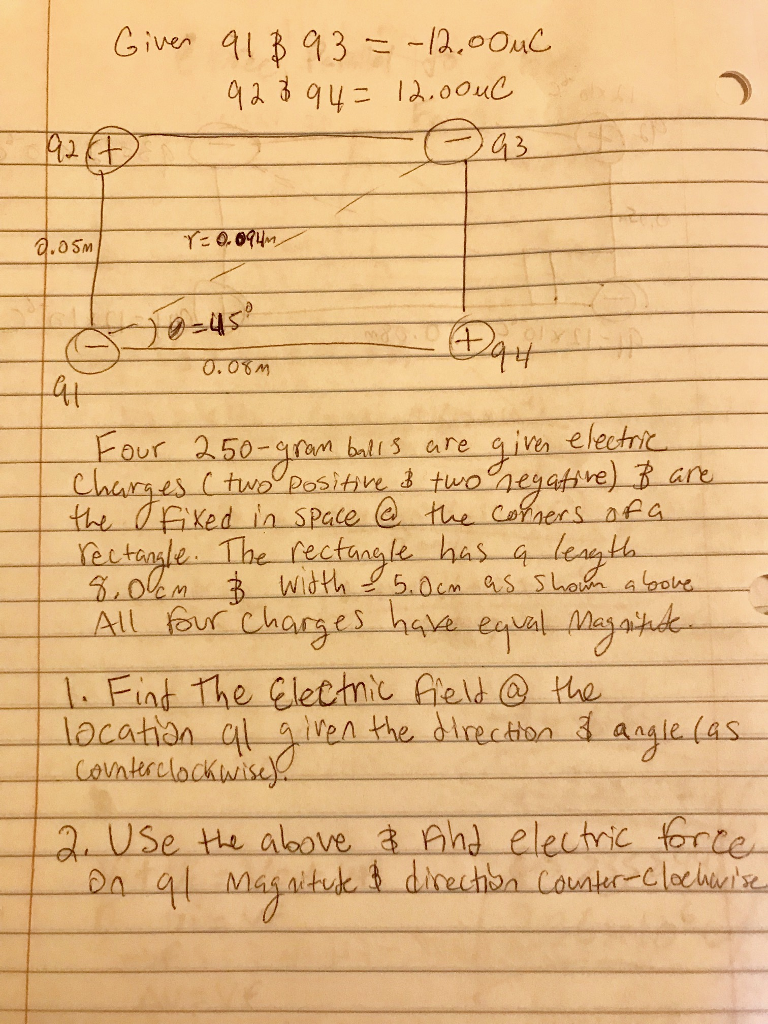 Given q1 & q3 = -12.00uC
q2 & q4 = 12.00uC
q2 +
- q3
0.05m
r = 0.094m
θ = 45°
-
0.08m
+ q4
q1
Four 250-gram balls are given electric
Charges (two positive & two negative) & are
the fixed in space @ the corners of a
rectangle. The rectangle has a length
8.0cm & width = 5.0cm as shown above
All four charges have equal Magnitude.
1. Find The Electric field @ the
location q1 given the direction & angle (as
counterclockwise).
2. Use the above & find electric force
on q1 magnitude & direction counter-clockwise